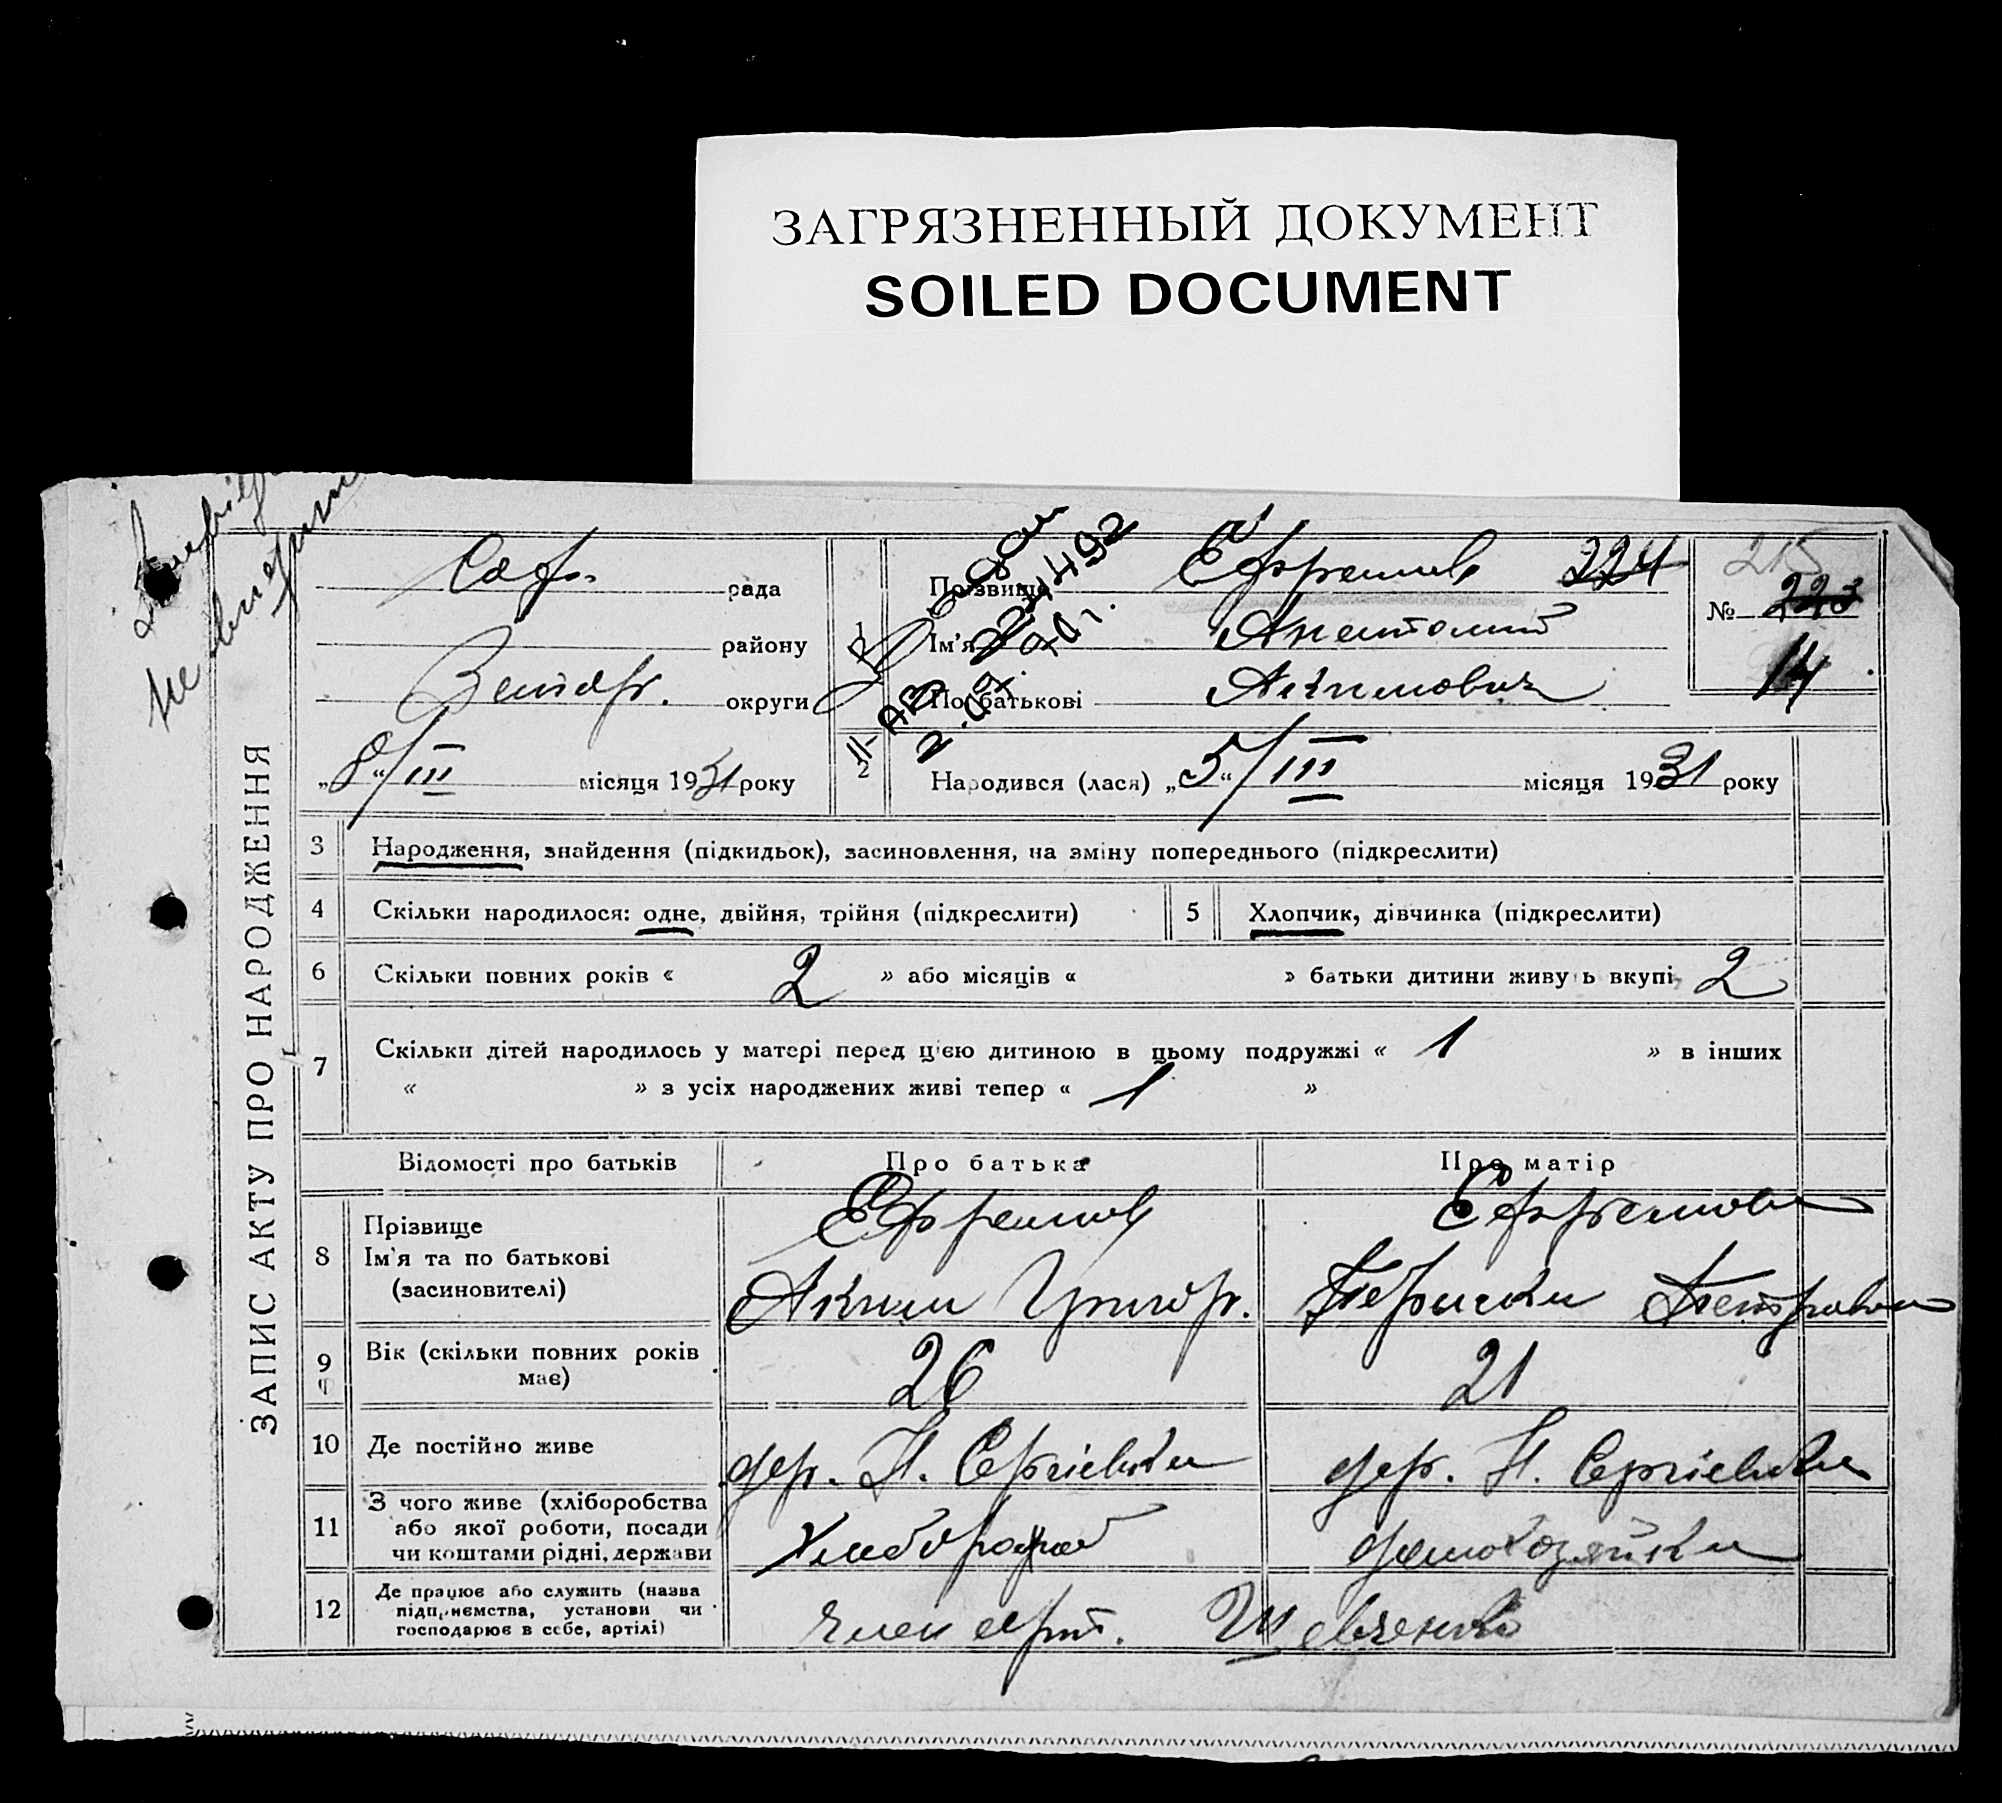 ЗАГРЯЗНЕННЫЙ ДОКУМЕНТ
SOILED DOCUMENT
ЗАПИС АКТУ ПРО НАРОДЖЕННЯ
рада
району
округи
„8“/III місяця 1931 року
1 Прізвище Ефремов 224
Ім'я Анатолий
По батькові Акимович
№ 223
215
14
2 Народився (лася) „5“/III місяця 1931 року
3 Народження, знайдення (підкидьок), засиновлення, на зміну попереднього (підкреслити)
4 Скільки народилося: одне, двійня, трійня (підкреслити)
5 Хлопчик, дівчинка (підкреслити)
6 Скільки повних років « 2 » або місяців « » батьки дитини живуь вкупі, 2
7 Скільки дітей народилось у матері перед цією дитиною в цьому подружжі « 1 » в інших
« » з усіх народжених живі тепер « 1 »
Відомості про батьків Про батька Про матір
8 Прізвище
Ім'я та по батькові
(засиновителі)
Ефремов
Аким Григор.
Ефремова
Петровна
9 Вік (скільки повних років
має)
26 21
10 Де постійно живе дер. Н. Сергіевка дер. Н. Сергіевка
11 З чого живе (хліборобства
або якої роботи, посади
чи коштами рідні, держави
Хлебороб домохозяйка
12 Де працює або служить (назва
підприємства, установи чи
господарює в себе, артілі)
член арт. Шевченко